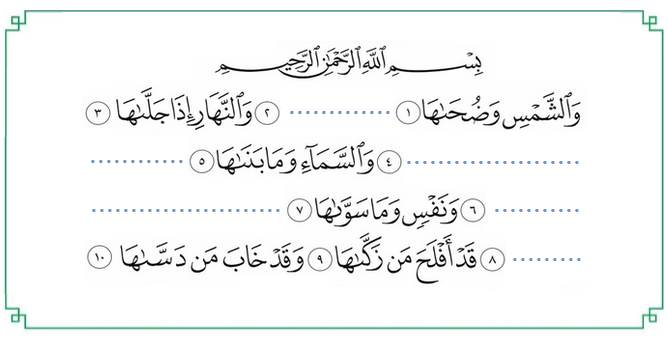 بِسْمِ ٱللَّهِ ٱلرَّحْمَٰنِ ٱلرَّحِيمِ
وَٱلشَّمْسِ وَضُحَىٰهَا ١ .............. ٢ وَٱلنَّهَارِ إِذَا جَلَّىٰهَا ٣
........................ ٤ وَٱلسَّمَآءِ وَمَا بَنَىٰهَا ٥ .............
............ ٦ وَنَفْسٍ وَمَا سَوَّىٰهَا ٧ ..........................
.......... ٨ قَدْ أَفْلَحَ مَن زَكَّىٰهَا ٩ وَقَدْ خَابَ مَن دَسَّىٰهَا ١٠